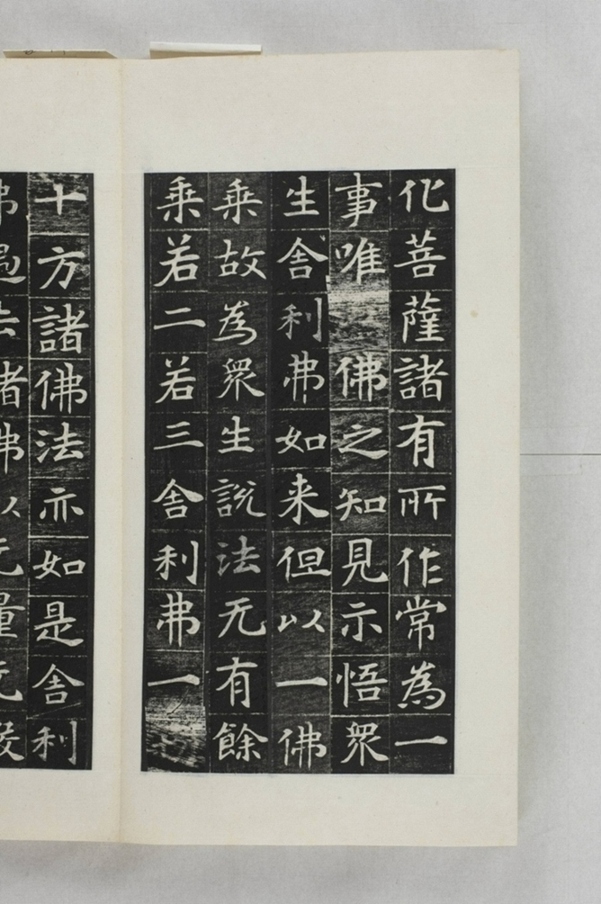 化菩薩諸有所作常為一
事唯佛之知見示悟衆
生舍利弗如来但以一佛
乗故為衆生說法无有餘
乗若二若三舍利弗一切
十方諸佛法亦如是舍利
弗過去諸佛以无量无